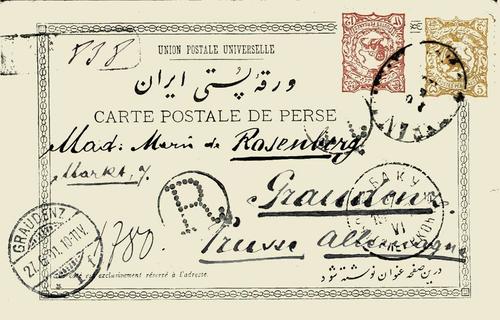 838
UNION POSTALE UNIVERSELLE
ورقه پستی ایران
CARTE POSTALE DE PERSE
Mad: Marie de Rosenberg
Markt, 7.
Graudenz
Prusse Allemagne
R
1780
GRAUDENZ
БАКУ
VI
est exclusivement réservé à l'adresse.
درین صفحه عنوان نوشته شود